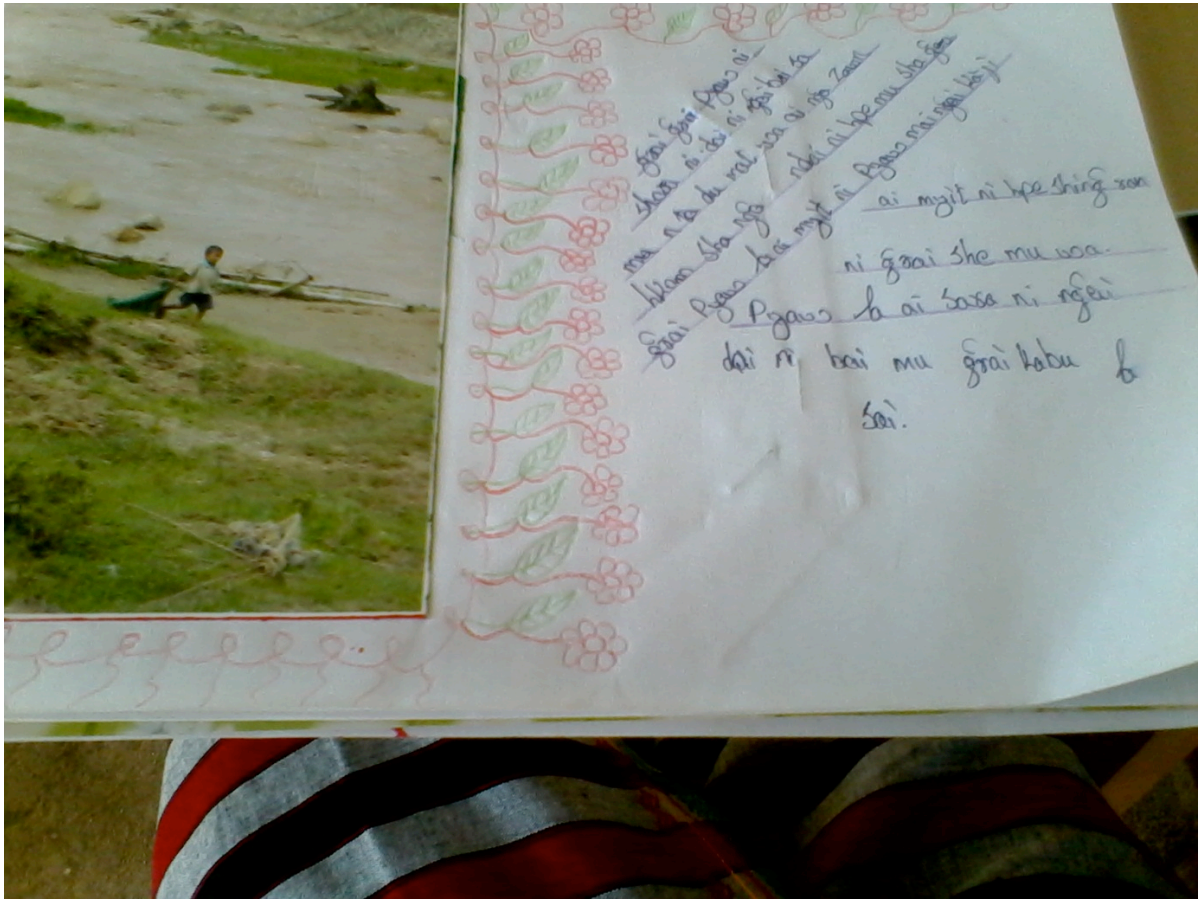 grai grai Pyaw ni
sharа ni dai ni ngai bai sa
mu n sa du mat wa ai ngo Zawn
hkam sha ngo ndai ni hpe mu sha gra
grai Pyaw la ai myit ni Pyaw mai ngai
ai myit ni hpe shing ran
ni grai she mu wa.
Pyaw la ai sara ni ngeu
dai ni bai mu grai kabu la
sai.